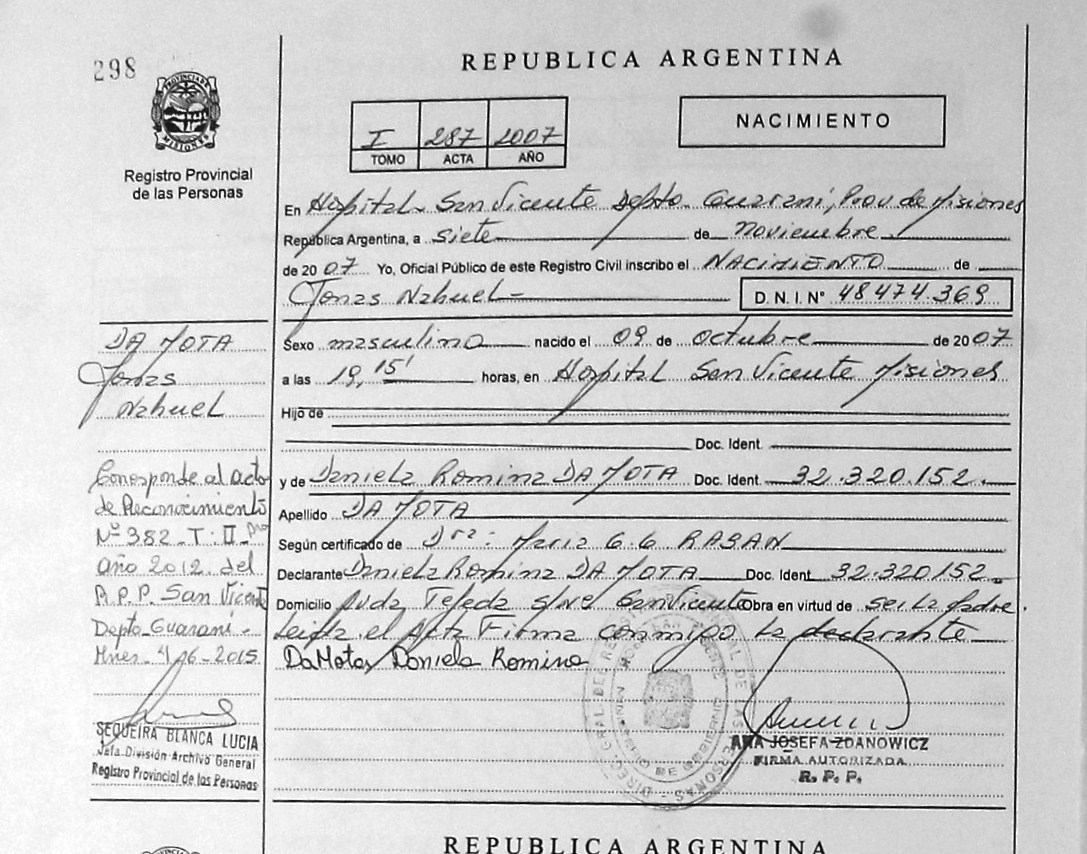 298
REPUBLICA ARGENTINA
PROVINCIA DE MISIONES
Registro Provincial
de las Personas
I 287 2007
TOMO ACTA AÑO
NACIMIENTO
En Hospital San Vicente Depto. Guarani, Prov de Misiones
República Argentina, a siete de Noviembre
de 2007 Yo, Oficial Público de este Registro Civil inscribo el NACIMIENTO de
Jonas Nahuel D. N. I. N° 48474.369
Sexo masculino nacido el 09 de octubre de 2007
a las 19,15' horas, en Hospital San Vicente Misiones
Hijo de
Doc. Ident.
y de Daniela Romina DA MOTA Doc. Ident. 32.320.152.
Apellido DA MOTA
Según certificado de Dra: Maria G.G RAGAN
Declarante Daniela Romina DA MOTA Doc. Ident. 32.320152
Domicilio Avda Tejeda s/n San Vicente Obra en virtud de ser la Madre.
Leida el Acta Firma conmigo la declarante
Da Mota, Daniela Romina
DA MOTA
Jonas
Nahuel
Corresponde al acto
de Reconocimiento
Nº 382 T: II
año 2012 del
R.P.P. San Vicente
Depto Guarani.
Mnes. 4/06-2015
SEQUEIRA BLANCA LUCIA
Jefa División Archivo General
Registro Provincial de las Personas
ANA JOSEFA ZDANOWICZ
FIRMA AUTORIZADA
R. P. P.
REPUBLICA ARGENTINA